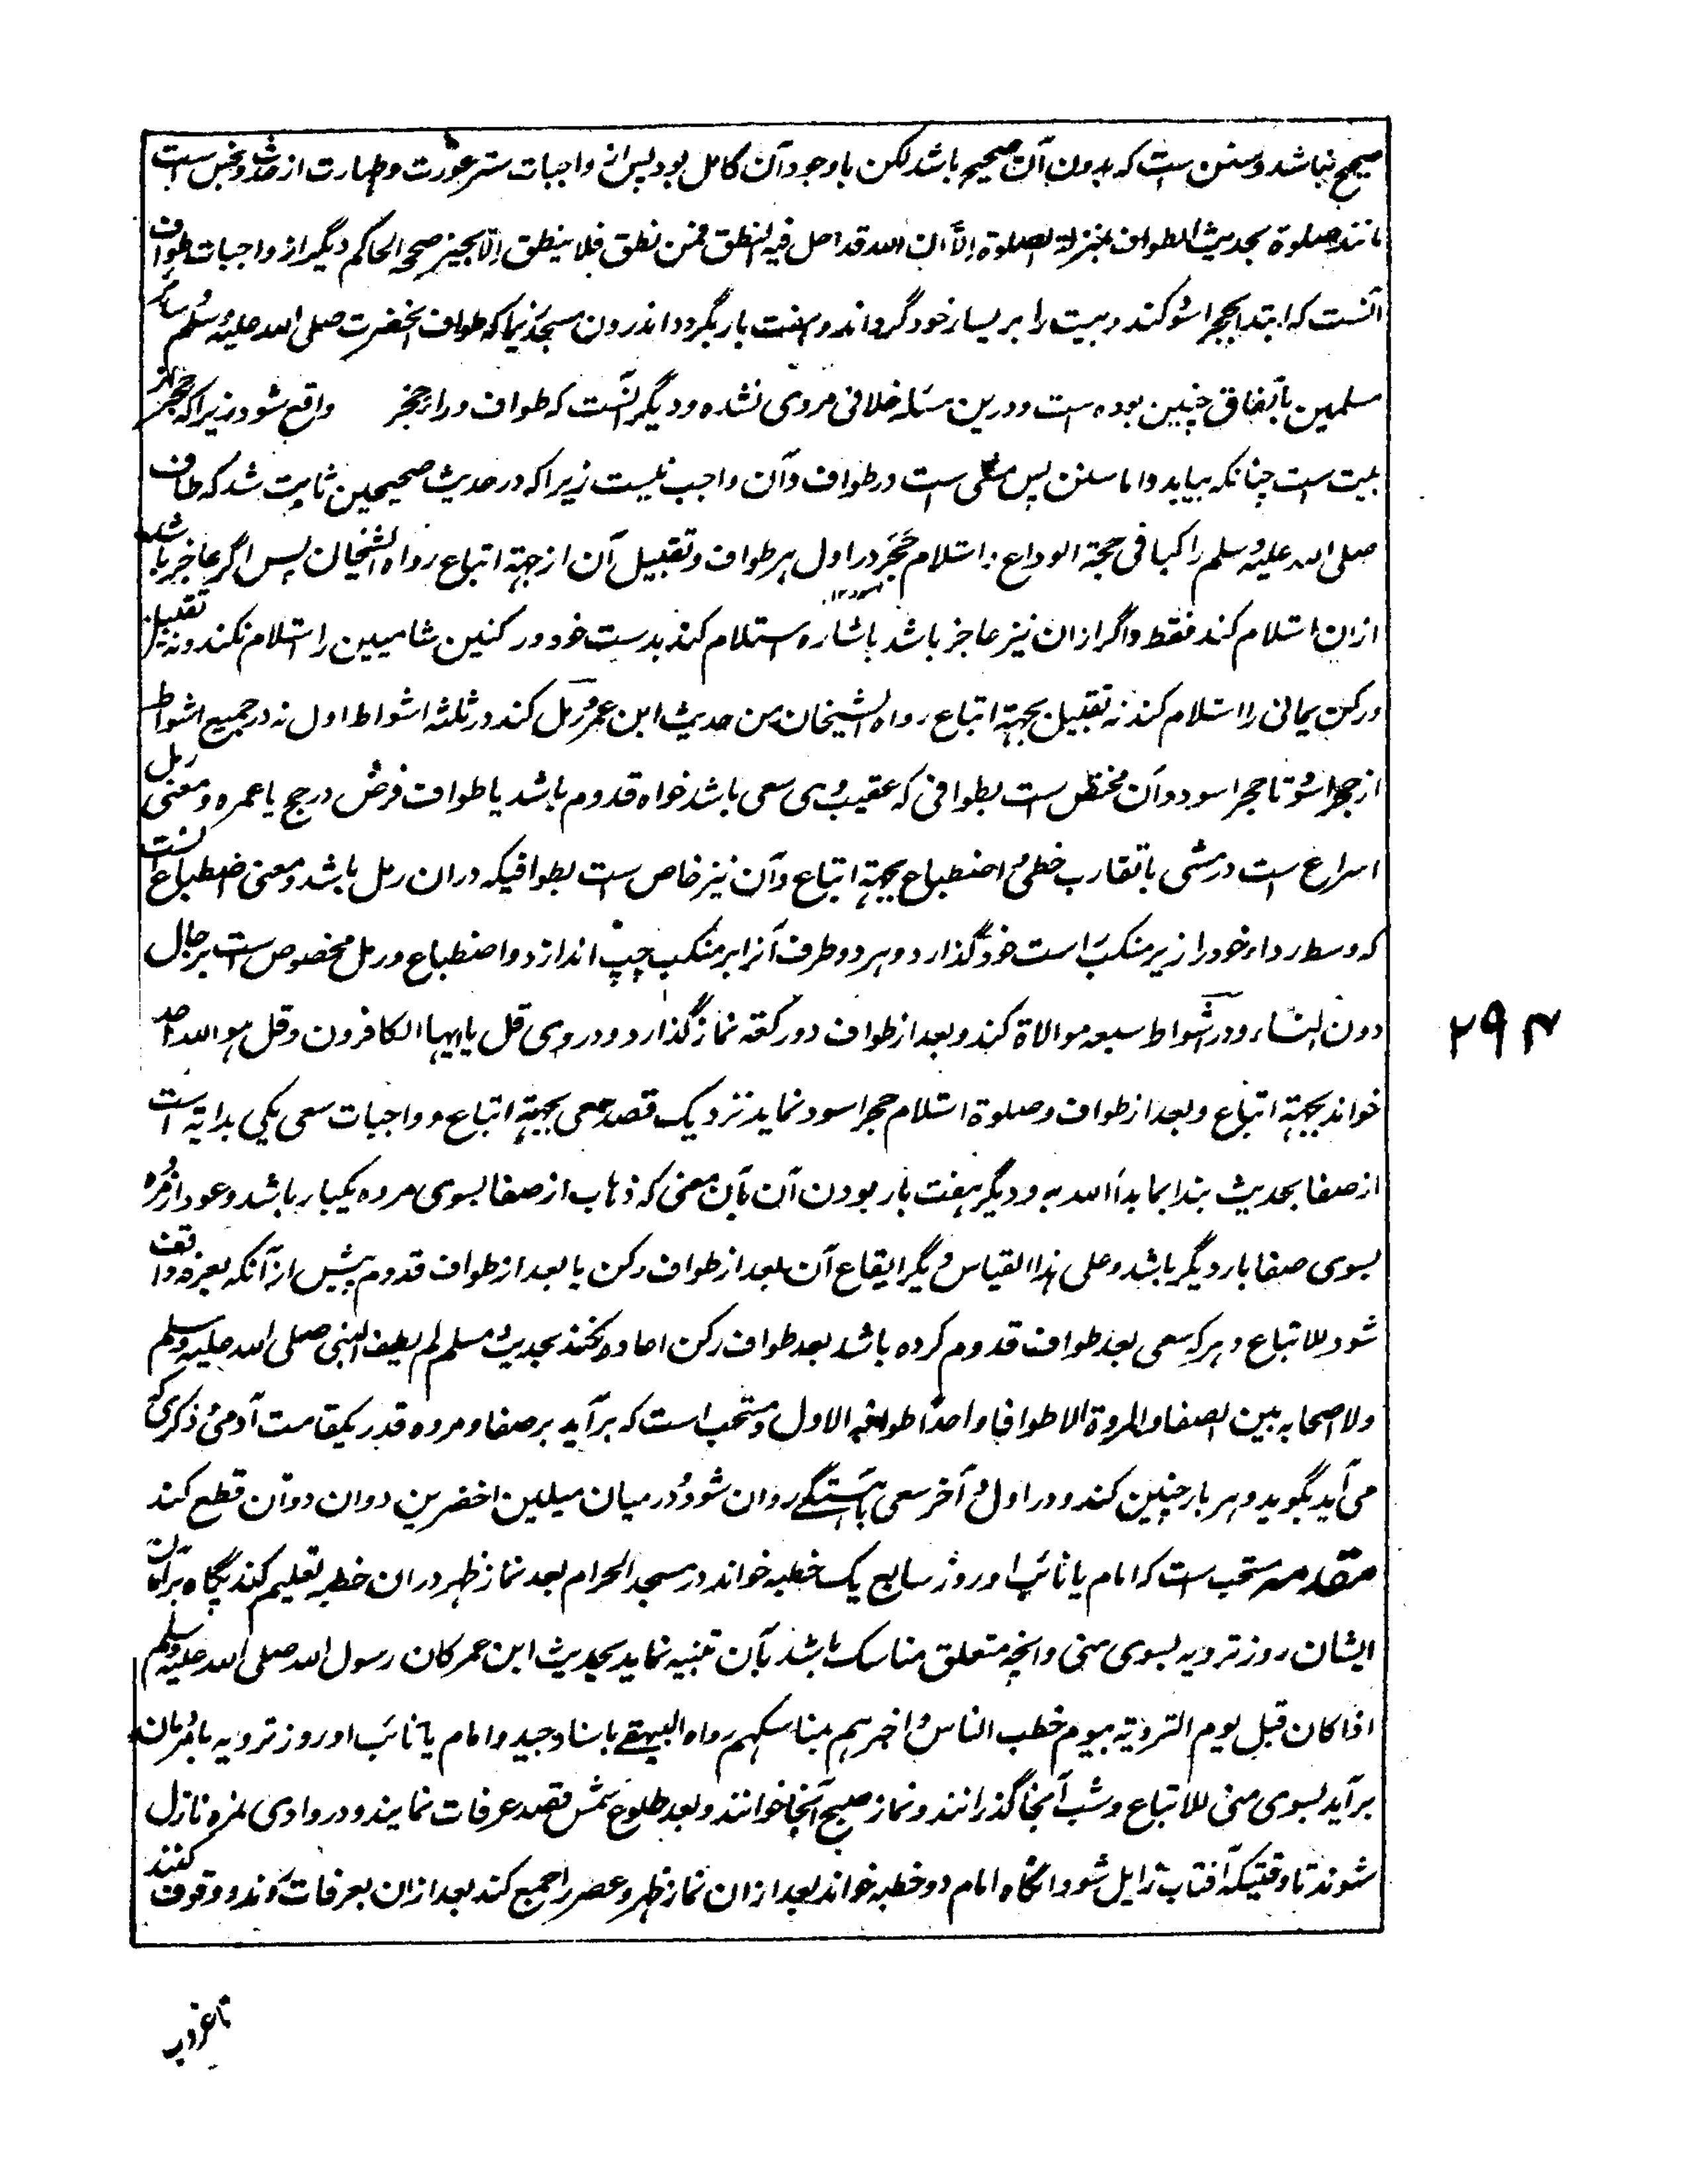 صحیح نباشد و سنن ست که بدون آن صحیح باشد لکن با وجود آن کامل بود پس از واجبات ستر عورت و طهارت از حدث و نجس است
مانند صلوة بحدیث الطواف بمنزلة الصلوة الا ان الله قد احل فیه النطق فمن نطق فلا ینطق الا بخیر صححه الحاکم دیگر از واجبات طواف
آنست که ابتدا بحجر اسود کند و بیت را بر یسار خود گرداند و هفت بار بگردد اندرون مسجد زیرا که طواف آنحضرت صلی الله علیه وسلم و سائر
مسلمین باتفاق چنین بوده ست و درین مسئله خلافی مروی نشده و دیگر آنست که طواف ورای حجر واقع شود زیرا که حجر از
بیت ست چنانکه بیاید و اما سنن پس مشی ست در طواف و آن واجب نیست زیرا که در حدیث صحیحین ثابت شد که طاف
صلی الله علیه وسلم راکبا فی حجة الوداع و استلام حجر در اول هر طواف و تقبیل آن از جهة اتباع رواه الشیخان پس اگر عاجز باشد
اسود ۱۲
ازان استلام کند فقط و اگر ازان نیز عاجز باشد باشاره استلام کند بدست خود و رکنین شامیین را استلام نکند و نه تقبیل
و رکن یمانی را استلام کند نه تقبیل بجهة اتباع رواه الشیخان من حدیث ابن عمر و رمل کند در ثلثه اشواط اول نه در جمیع اشواط
از حجر اسود تا حجر اسود و آن مختص ست بطوافی که عقیب وی سعی باشد خواه قدوم باشد یا طواف فرض در حج یا عمره و معنی رمل
اسراع ست در مشی با تقارب خطی و اضطباع بجهة اتباع و آن نیز خاص ست بطوافیکه دران رمل باشد و معنی اضطباع آنست
که وسط رداء خود را زیر منکب راست خود گذارد و هر دو طرف آنرا بر منکب چپ اندازد و اضطباع و رمل مخصوص ست برجال
دون النساء و در اشواط سبعه موالاة کند و بعد از طواف دو رکعة نماز گذارد و در وی قل یا ایها الکافرون و قل هو الله احد
۲۹۴
خواند بجهة اتباع و بعد از طواف و صلوة استلام حجر اسود نماید نزدیک قصد سعی بجهة اتباع و واجبات سعی یکی بدایة است
از صفا بحدیث نبدأ بما بدأ الله به و دیگر هفت بار بودن آن بآن معنی که ذهاب از صفا بسوی مروه یکبار باشد و عود از مروه
بسوی صفا بار دیگر باشد و علی هذا القیاس و دیگر ایقاع آن بعد از طواف رکن یا بعد از طواف قدوم پیش از آنکه بعرفه واقف
شود للاتباع و هر که سعی بعد طواف قدوم کرده باشد بعد طواف رکن اعاده نکند بحدیث مسلم لم یطف النبی صلی الله علیه وسلم
ولا اصحابه بین الصفا والمروة الا طوافا واحدا طوافه الاول و مستحب است که برآید بر صفا و مروه قدر یکقامت آدمی و ذکری که
می آید بگوید و هر بار چنین کند و در اول و آخر سعی بآهستگے روان شود و در میان میلین اخضرین دوان دوان قطع کند
مقدمه مستحب ست که امام یا نائب او روز سابع یک خطبه خواند در مسجد الحرام بعد نماز ظهر دران خطبه تعلیم کند پگاه برآمدن
ایشان روز ترویه بسوی منی و آنچه متعلق مناسک باشد بآن تنبیه نماید بحدیث ابن عمر کان رسول الله صلی الله علیه وسلم
اذا کان قبل یوم الترویة بیوم خطب الناس و اخبرهم بمناسکهم رواه البیهقے باسناد جید و امام یا نائب او روز ترویه با مردمان
برآید بسوی منی للاتباع و شب آنجا گذرانند و نماز صبح آنجا خوانند و بعد طلوع شمس قصد عرفات نمایند و در وادی نمره نازل
شوند تا وقتیکه آفتاب زایل شود و آنگاه امام دو خطبه خواند بعد ازان نماز ظهر و عصر را جمع کند بعد ازان بعرفات آوند و وقوف کنند
تا غروب